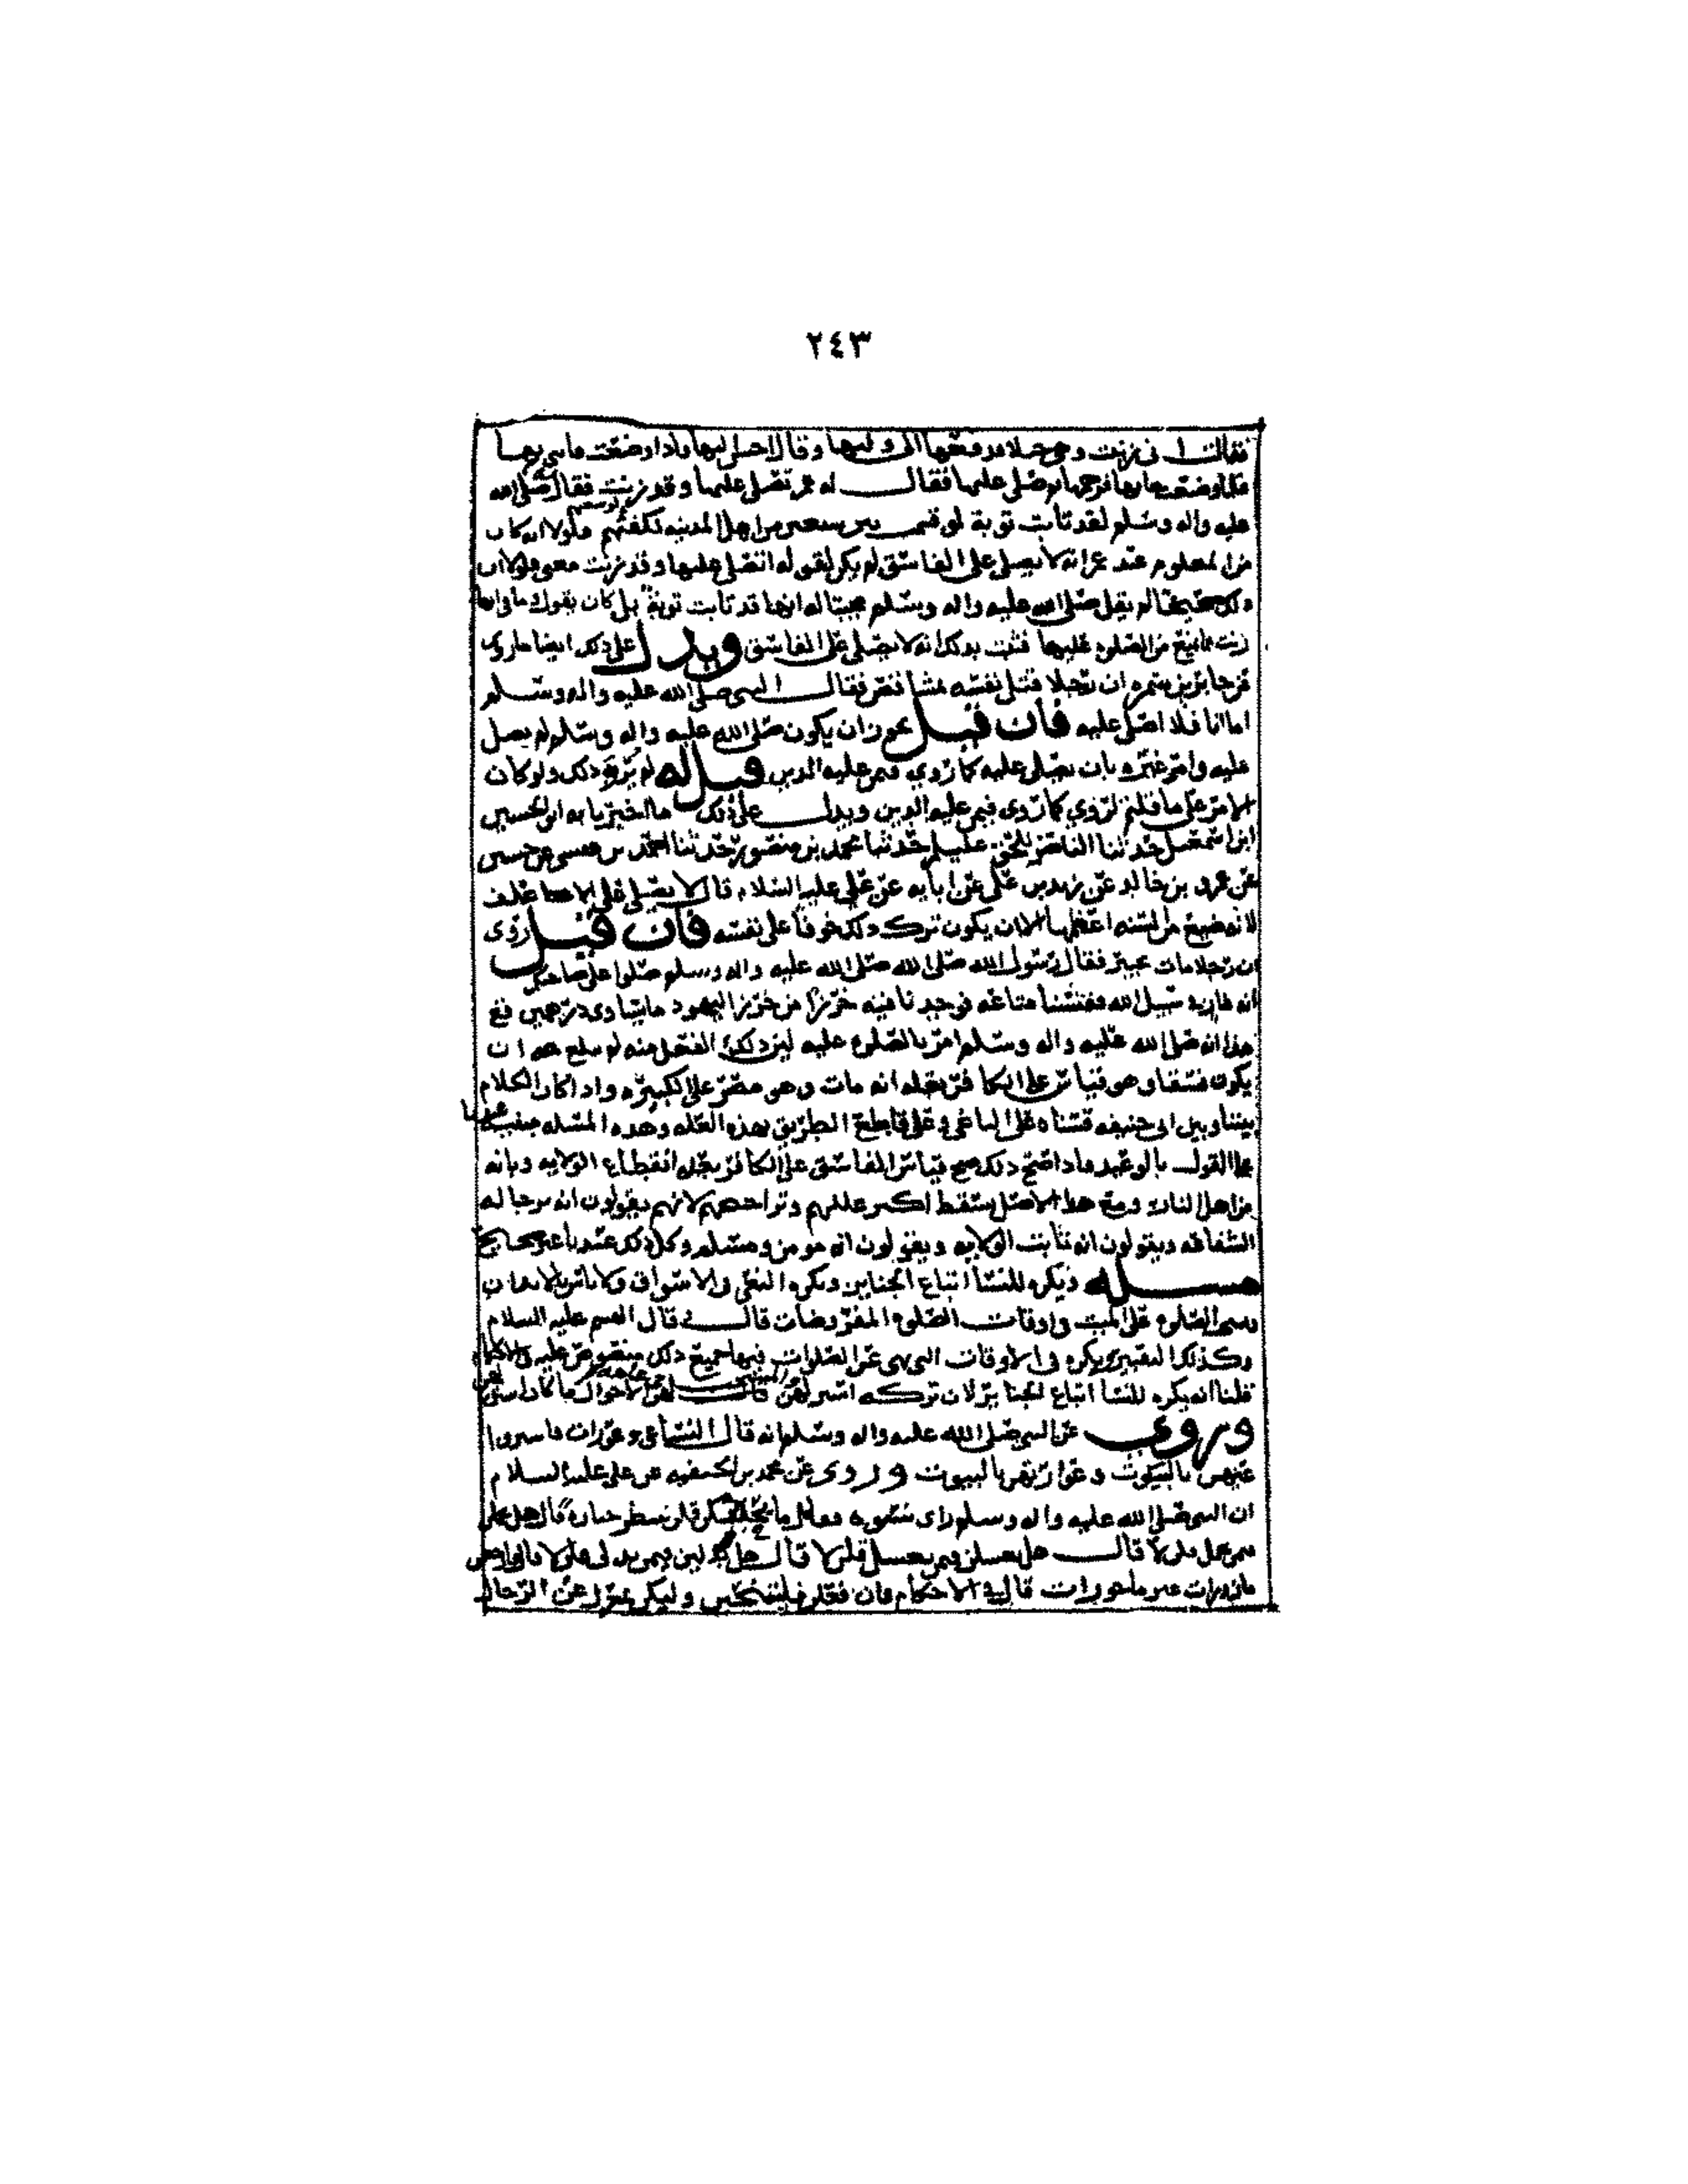 ٢٤٣
فقالت اني زنيت وهي حبلى فدفعها الى وليها وقال احسن اليها فاذا وضعت فأتني بها
فلما وضعت جاء بها فرجمها ثم صلى عليها فقال له عمر تصلي عليها وقد زنيت فقال صلى الله
عليه واله وسلم لقد تابت توبة لو قسمت بين سبعين من اهل المدينه لوسعتهم فلولا انه كان
من المعلوم عند عمر انه لا يصلى على الفاسق لم يكن لقوله اتصلي عليها وقد زنيت معنى ولولا ان
ذلك لم يقل صلى الله عليه واله وسلم مجيبا له انها قد تابت توبة بل كان يقول ما في انها
زنيت ما يمنع من الصلوة عليها فثبت بذلك انه لا يصلى على الفاسق ويدل على ذلك ايضا ما روي
عن جابر بن سمره ان رجلا قتل نفسه بمشاقص فقال النبي صلى الله عليه واله وسلم
اما انا فلا اصلي عليه فان قيل يجوز ان يكون صلى الله عليه واله وسلم لم يصل
عليه وامر غيره بان يصلى عليه كما روي فيمن عليه الدين قيل له لم يرو ذلك ولو كان
الامر على ما قلتم لروي كما روي فيمن عليه الدين ويدل على ذلك ما اخبرنا به ابو الحسين
ابن اسمعيل حدثنا الناصر للحق عليلم حدثنا محمد بن منصور حدثنا احمد بن عيسى عن حسين
عن عمرو بن خالد عن زيد بن علي عن ابايه عن علي عليه السلام قال لا يصلى على الاغلف
لانه ضيع من السنه اعظمها الا ان يكون ترك ذلك خوفا على نفسه فان قيل روي
ان رجلا مات بخيبر فقال رسول الله صلى الله عليه واله وسلم صلوا على صاحبكم
انه غل في سبيل الله ففتشنا متاعه فوجدنا فيه خرزا من خرز اليهود ما يساوي درهمين
هذا انه صلى الله عليه واله وسلم امر بالصلوة عليه لان ذلك الفعل منه لم يبلغ عنده ان
يكون فسقا وهو قياس على الكافر بعلة انه مات وهو مصر على الكبيره واذا كان الكلام
بيننا وبين ابي حنيفه قسناه على الباغي وعلى قاطع الطريق بهذه العله وهذه المسله مبنيه عندنا
على القول بالوعيد فاذا اتضح ذلك صح قياس الفاسق على الكافر بعلة انقطاع الولايه وبانه
من اهل النار ومع هذا الاصل يسقط اكثر عللهم وتراجيحهم لانهم يقولون انه يرجا له
الشفاعه ويقولون انه ثابت الولايه ويقولون انه مومن ومسلم وكل ذلك عندنا غير صحيح
مسله ويكره للنسا اتباع الجنايز ويكره النعي في الاسواق ولا باس بالايذان
الصلوة على الميت في اوقات الصلوة المفروضات قال قال القسم عليه السلام
وكذلك التقبير ويكره في الاوقات التي نهي عن الصلوات فيها جميع ذلك منصوص عليه في الاحكام
قلنا انه يكره للنسا اتباع الجنايز لان تركه استر لهن
وروي عن النبي صلى الله عليه واله وسلم انه قال النساء عي وعورات فاستروا
عيهن بالسكوت وعوراتهن بالبيوت وروي عن محمد بن الحنفيه عن علي عليه السلام
ان النبي صلى الله عليه واله وسلم راى نسوه فقال ما يجلسكن قلن ننتظر جنازة قال هل تحملن
فيمن يحمل قلن لا قال هل تغسلن فيمن يغسل قلن لا قال هل تدلين فيمن يدلي قلن لا قال فارجعن
مازورات غير ماجورات قال في الاحكام فان فعلن فليتنحين وليكن بمعزل عن الرجال